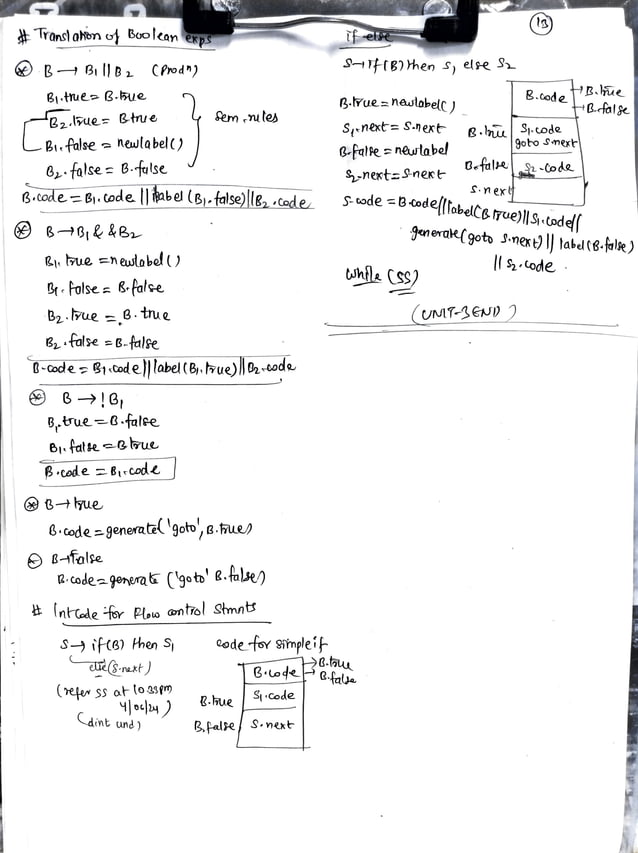 # Translation of Boolean exps
* B → B1 || B2 (Prodn)
B1.true = B.true
B2.true = B.true
B1.false = newlabel()
B2.false = B.false
sem.rules
B.code = B1.code || label (B1.false) || B2.code
* B → B1 && B2
B1.true = newlabel()
B1.false = B.false
B2.true = B.true
B2.false = B.false
B.code = B1.code || label (B1.true) || B2.code
* B → !B1
B1.true = B.false
B1.false = B.true
B.code = B1.code
* B → true
B.code = generate('goto', B.true)
B → False
B.code = generate ('goto' B.false)
# Int code for flow control stmnts
S → if(B) then S1
else (S.next)
(refer ss at 10 33pm
4/06/24)
(dint und)
code for simple if
B.code → B.true
→ B.false
B.true S1.code
B.false S.next
13
if else
S → if(B) then S1 else S2
B.true = newlabel()
S1.next = S.next
B.false = newlabel
S2.next = S.next
B.code → B.true
→ B.false
B.true S1.code
goto S.next
B.false S2.code
S.next
S.code = B.code || label(B.true) || S1.code ||
generate (goto S.next) || label (B.false)
|| S2.code.
while (SS)
(UNIT-3 END)